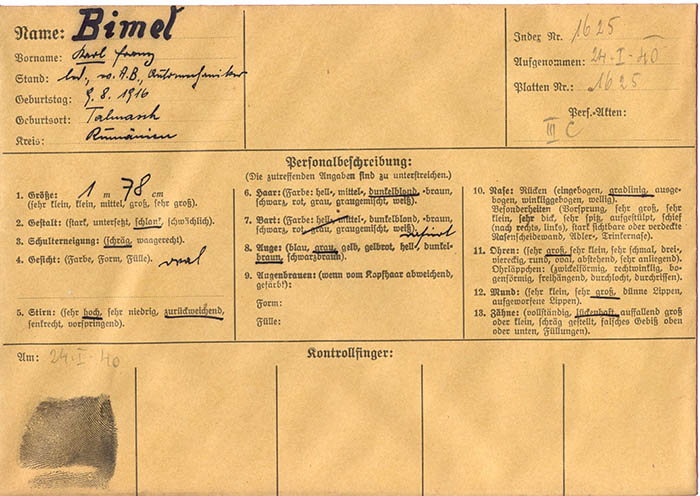 Name: Bimel
Vorname: Karl Franz
Stand: led., w. A.B., Automechaniker
Geburtstag: 9. 8. 1916
Geburtsort: Talmasch
Kreis: Rumänien
Index Nr. 1625
Aufgenommen: 24-I-40
Platten Nr.: 1625
Pers.-Akten:
III C
Personalbeschreibung:
(Die zutreffenden Angaben sind zu unterstreichen.)
1. Größe: 1 m 78 cm
(sehr klein, klein, mittel, groß, sehr groß).
2. Gestalt: (stark, untersetzt, schlank, schwächlich).
3. Schulterneigung: (schräg, waagerecht).
4. Gesicht: (Farbe, Form, Fülle). oval
5. Stirn: (sehr hoch, sehr niedrig, zurückweichend,
senkrecht, vorspringend).
6. Haar: (Farbe: hell-, mittel-, dunkelblond, -braun,
schwarz, rot, grau, graugemischt, weiß).
7. Bart: (Farbe: hell-, mittel-, dunkelblond, -braun,
schwarz, grau, graugemischt, weiß). rasiert
8. Auge: (blau, grau, gelb, gelbrot, hell-, dunkel-
braun, schwarzbraun).
9. Augenbrauen: (wenn vom Kopfhaar abweichend,
gefärbt):
Form:
Fülle:
10. Nase: Rücken (eingebogen, gradlinig, ausge-
bogen, winkliggebogen, wellig).
Besonderheiten (Vorsprung, sehr groß, sehr
klein, sehr dick, sehr spitz, aufgestülpt, schief
(nach rechts, links), stark sichtbare oder verdeckte
Nasenscheidewand, Adler-, Trinkernase).
11. Ohren: (sehr groß, sehr klein, sehr schmal, drei-,
viereckig, rund, oval, abstehend, sehr anliegend).
Ohrläppchen: (zwickelförmig, rechtwinklig, bo-
genförmig, freihängend, durchlocht, durchrissen).
12. Mund: (sehr klein, sehr groß, dünne Lippen,
aufgeworfene Lippen).
13. Zähne: (vollständig, lückenhaft, auffallend groß
oder klein, schräg gestellt, falsches Gebiß oben
oder unten, Füllungen).
Am: 24-I-40
Kontrollfinger: